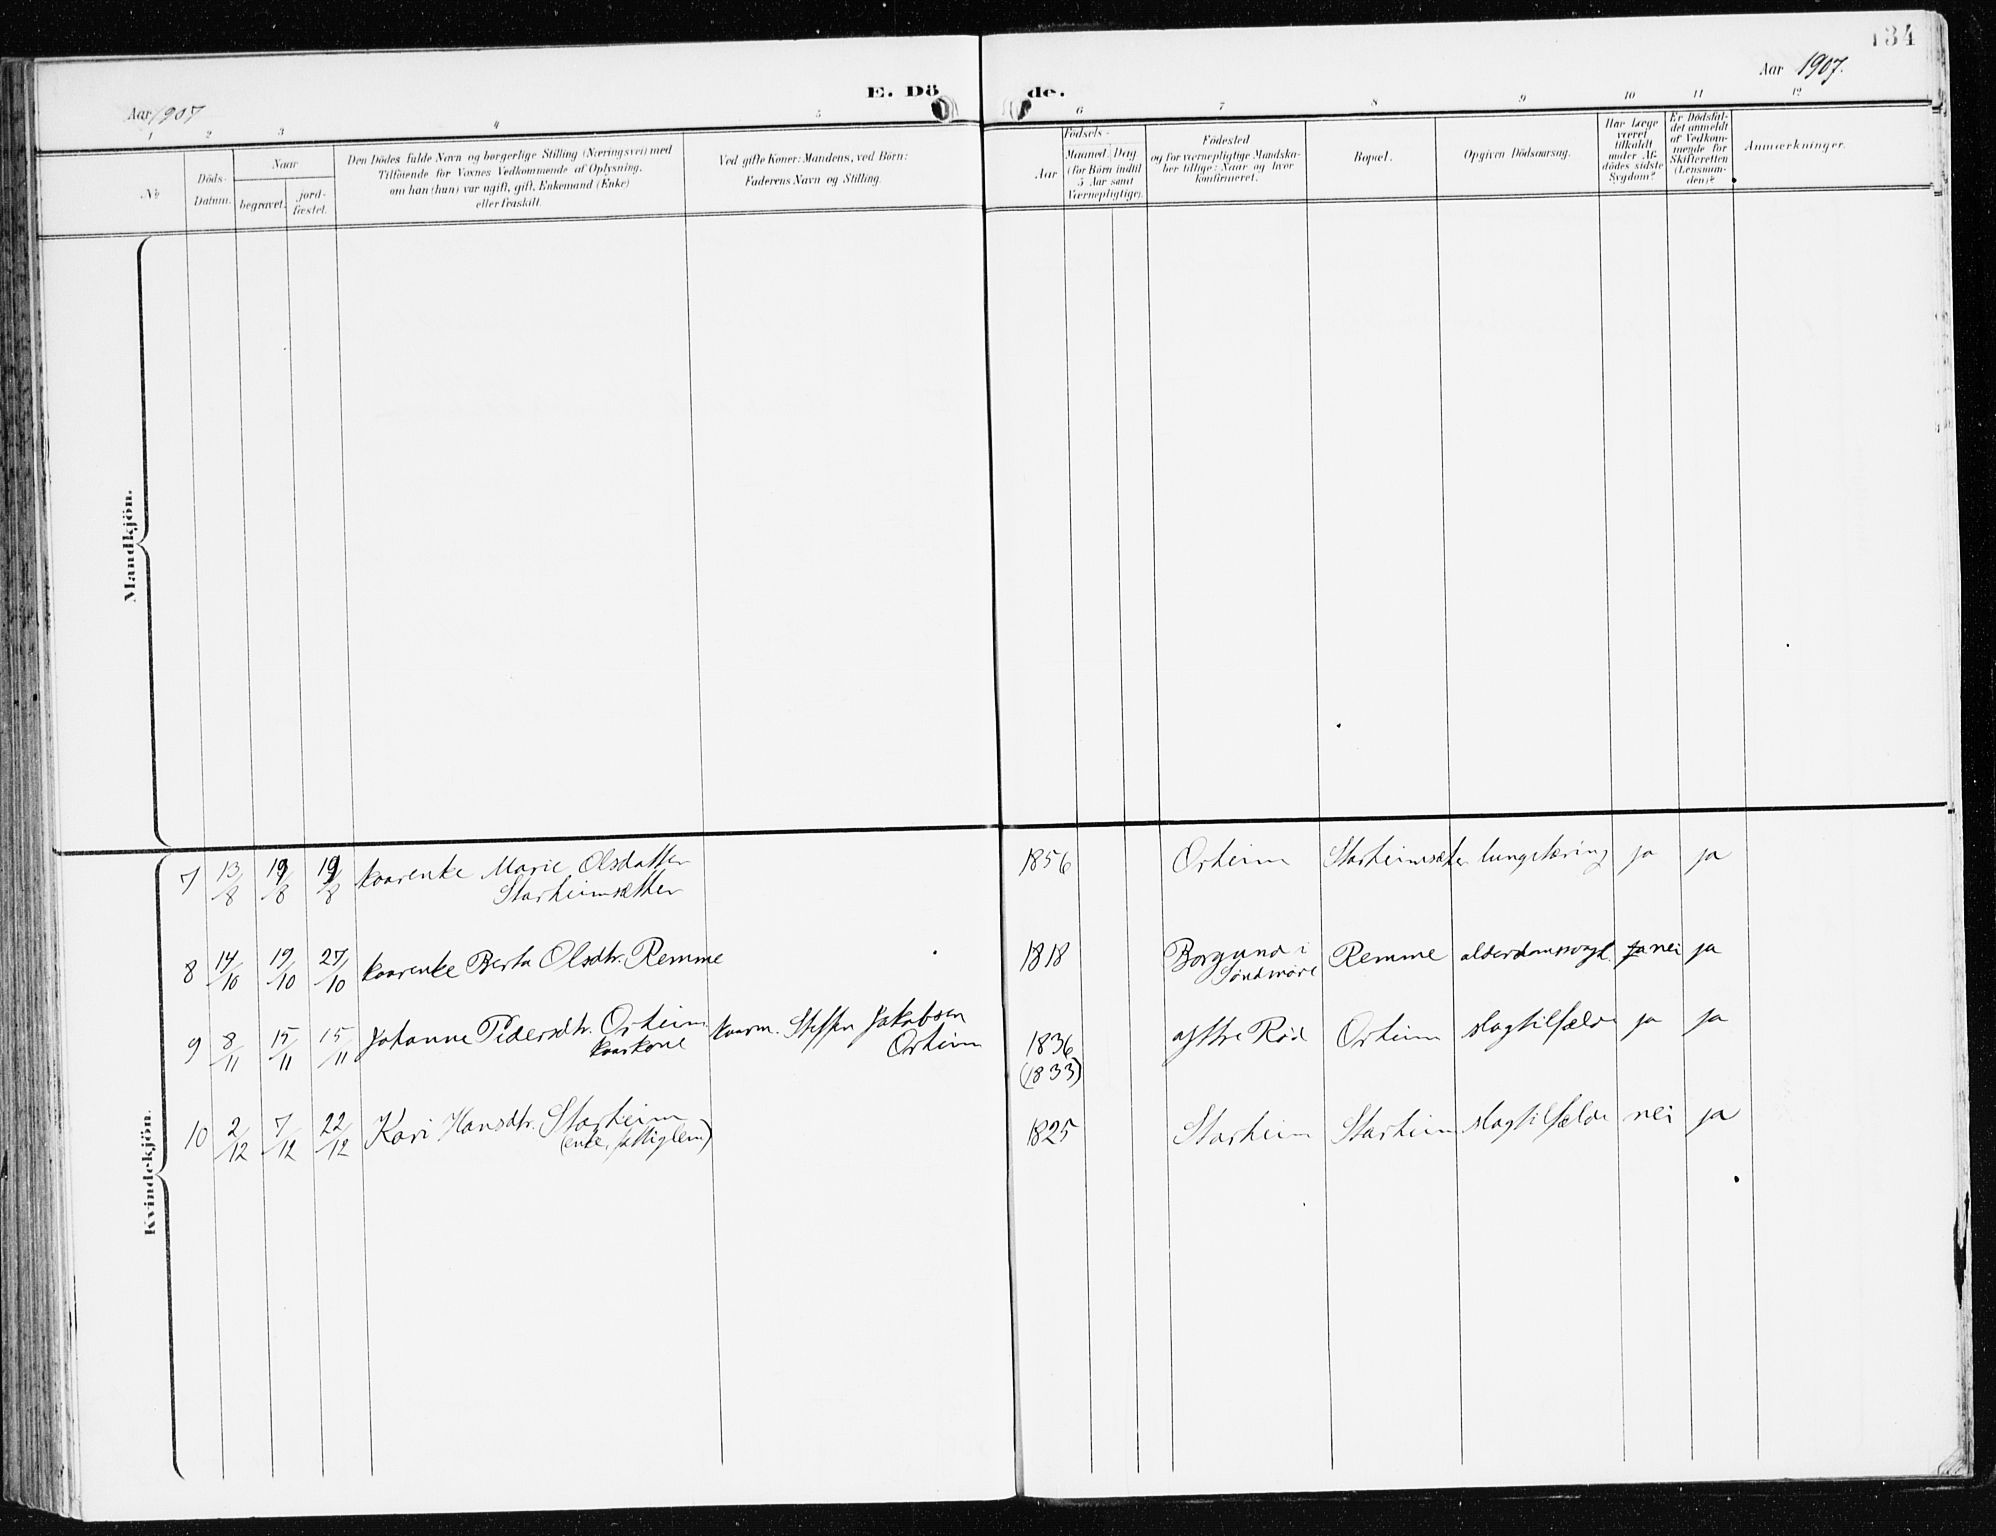 134
Aar 1907
E. Dö
de.
Aar 1907.
1 2 3 4 5 6 7 8 9 10 11 12
№
Döds-
Datum.
Naar
begravet.
jord-
fæstet.
Den Dödes fulde Navn og borgerlige Stilling (Næringsvei) med
Tilföiende for Voxnes Vedkommende af Oplysning,
om han (hun) var ugift, gift, Enkemand (Enke)
eller fraskilt.
Ved gifte Koner: Mandens, ved Börn:
Faderens Navn og Stilling.
Födsels-
Aar
Maaned. Dag
(for Börn indtil
5 Aar samt
Værnepligtige).
Födested
og for værnepligtige Mandska-
ber tillige: Naar og hvor
konfirmeret.
Bopæl.
Opgiven Dödsaarsag.
Har Læge
været
tilkaldt
under Af-
dödes sidste
Sygdom?
Er Dödsfal-
det anmeldt
af Vedkom-
mende for
Skifteretten
(Lensman-
den)?
Anmærkninger.
Mandkjön.
Kvindekjön.
7 13/8 19/8 19/8 kaarenke Marie Olsdatter 1856 Orheim Starheimsæter lungetæring ja ja
Starheimsæther
8 14/10 19/10 27/10 kaarenke Berta Olsdtr. Remme 1818 Borgund i Remme alderdomssvagh. ja nei ja
Søndmøre
9 8/11 15/11 15/11 Johanne Pedersdtr. Orheim kaarm. Steffen Jakobsen 1836 Ytre Rød Orheim slagtilfælde ja ja
kaarkone Orheim (1833)
10 2/12 7/12 22/12 Kari Hansdtr. Starheim 1825 Starheim Starheim slagtilfælde nei ja
(enke, fattiglem)